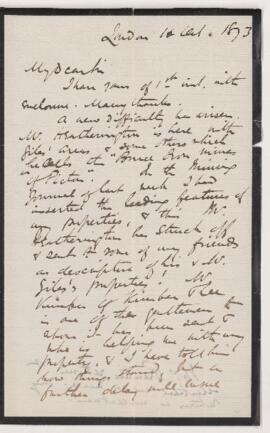 London 18 Oct. 1873
My Dear Sir
I have yours of 1st inst. with
enclosure. Many thanks.
A new difficulty has arisen.
Mr. Heatherington is here with
Giles' areas & some others which
he calls the "Bruce Iron mines
of Pictou". In the Mining
Journal of last week I had
inserted the leading features of
my properties, & this Mr.
Heatherington has struck off
& sent it to some of my friends
as descriptive of his & Mr.
Giles's properties! Mr.
Kimber of Kimber & Lee
is one of the gentlemen
above has been sent to
who is helping me with my
property, & I have told him
how things stand, but a
further delay will ensue